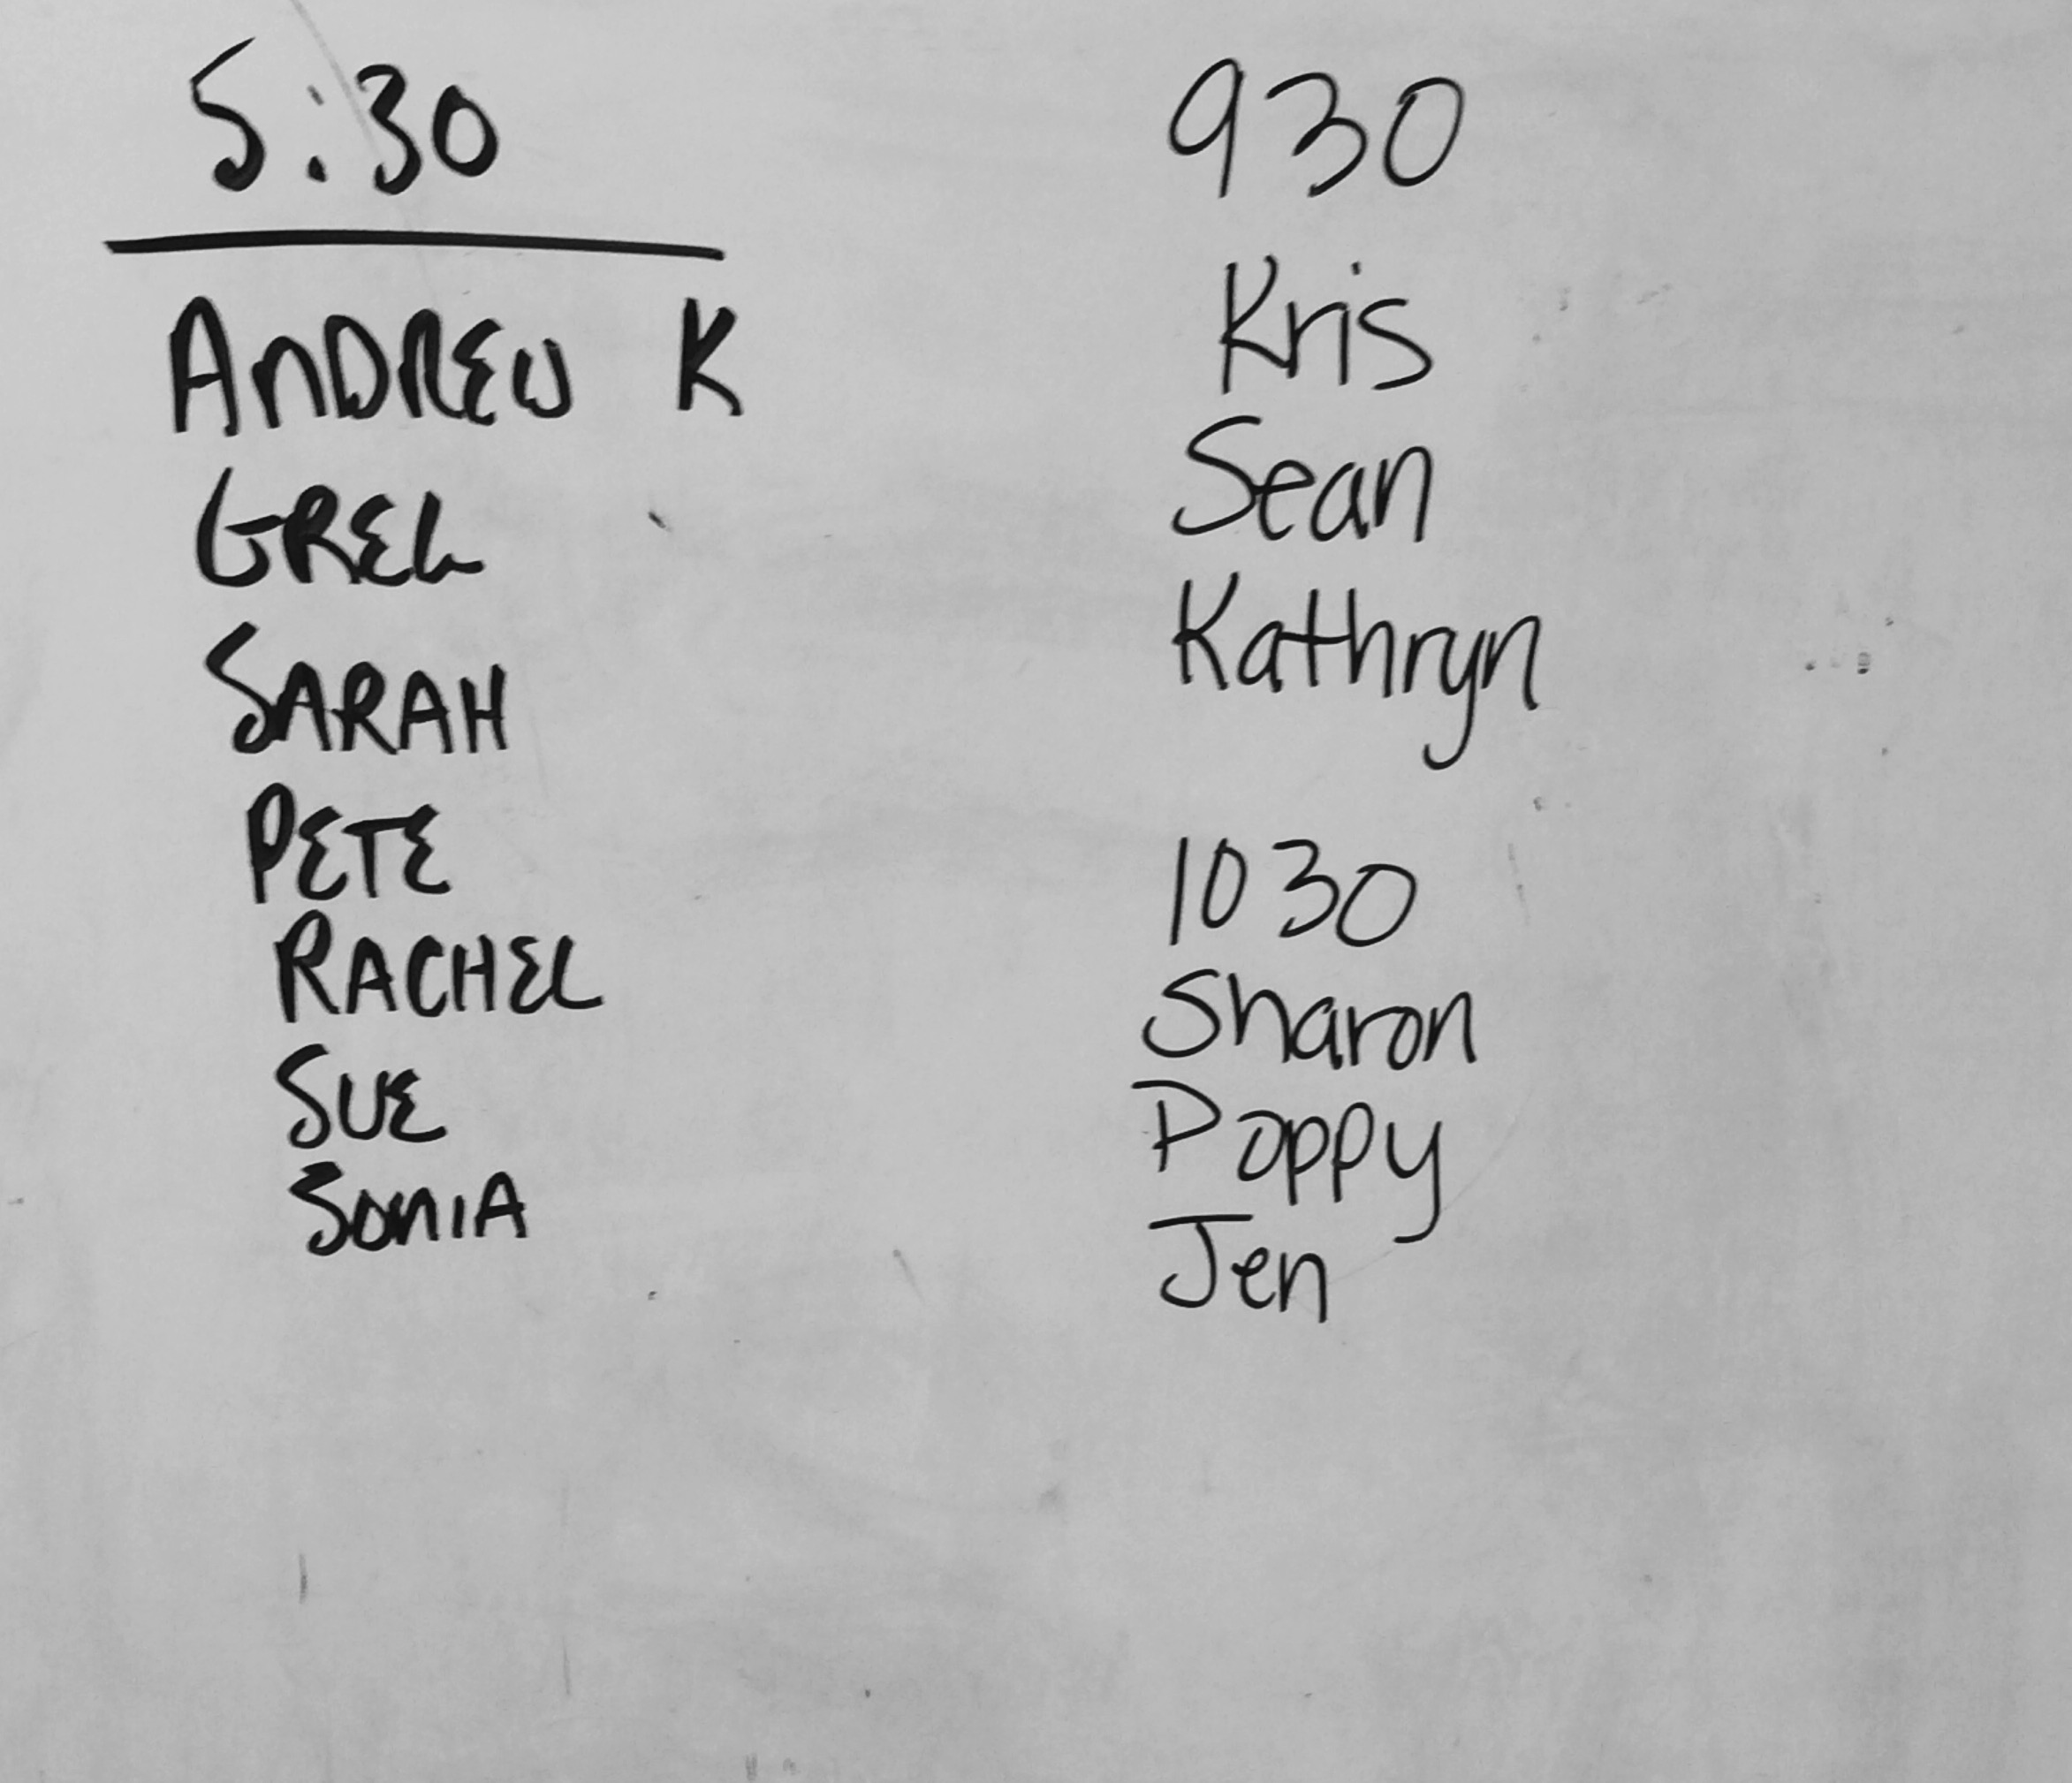 5:30
ANDREW K
GREG
SARAH
PETE
RACHEL
SUE
SONIA
930
Kris
Sean
Kathryn
1030
Sharon
Poppy
Jen